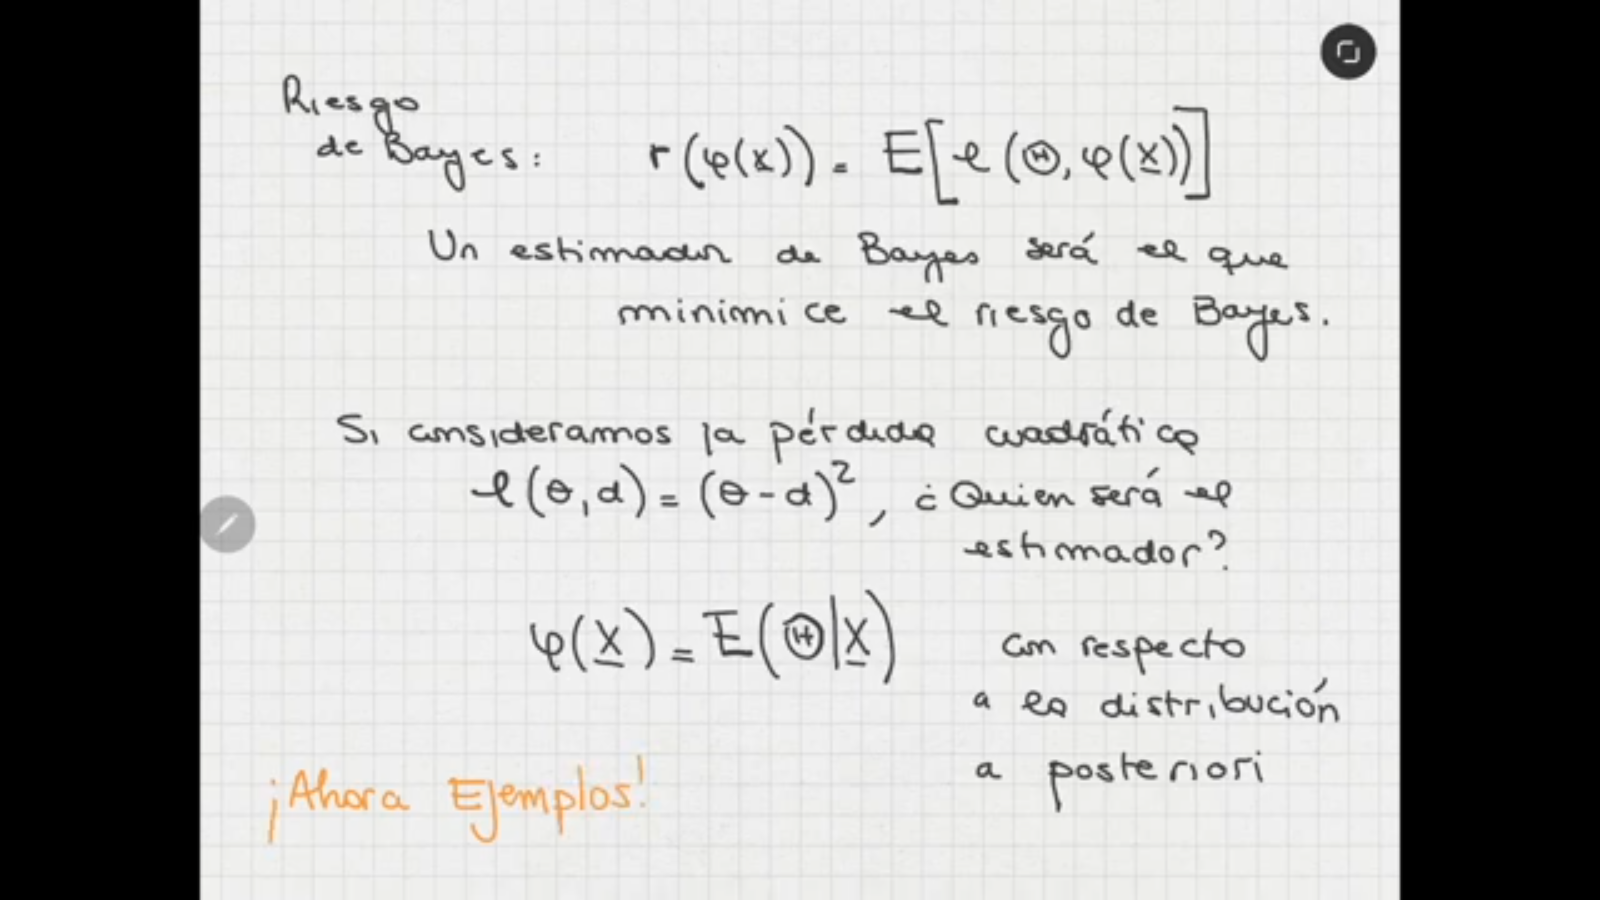 Riesgo
de Bayes: r(φ(x)) = E[ℓ(Θ, φ(X))]
Un estimador de Bayes será el que
minimice el riesgo de Bayes.
Si consideramos la pérdida cuadrática
ℓ(θ, d) = (θ - d)², ¿Quien será el
estimador?
φ(X) = E(Θ|X) con respecto
a la distribución
a posteriori
¡Ahora Ejemplos!